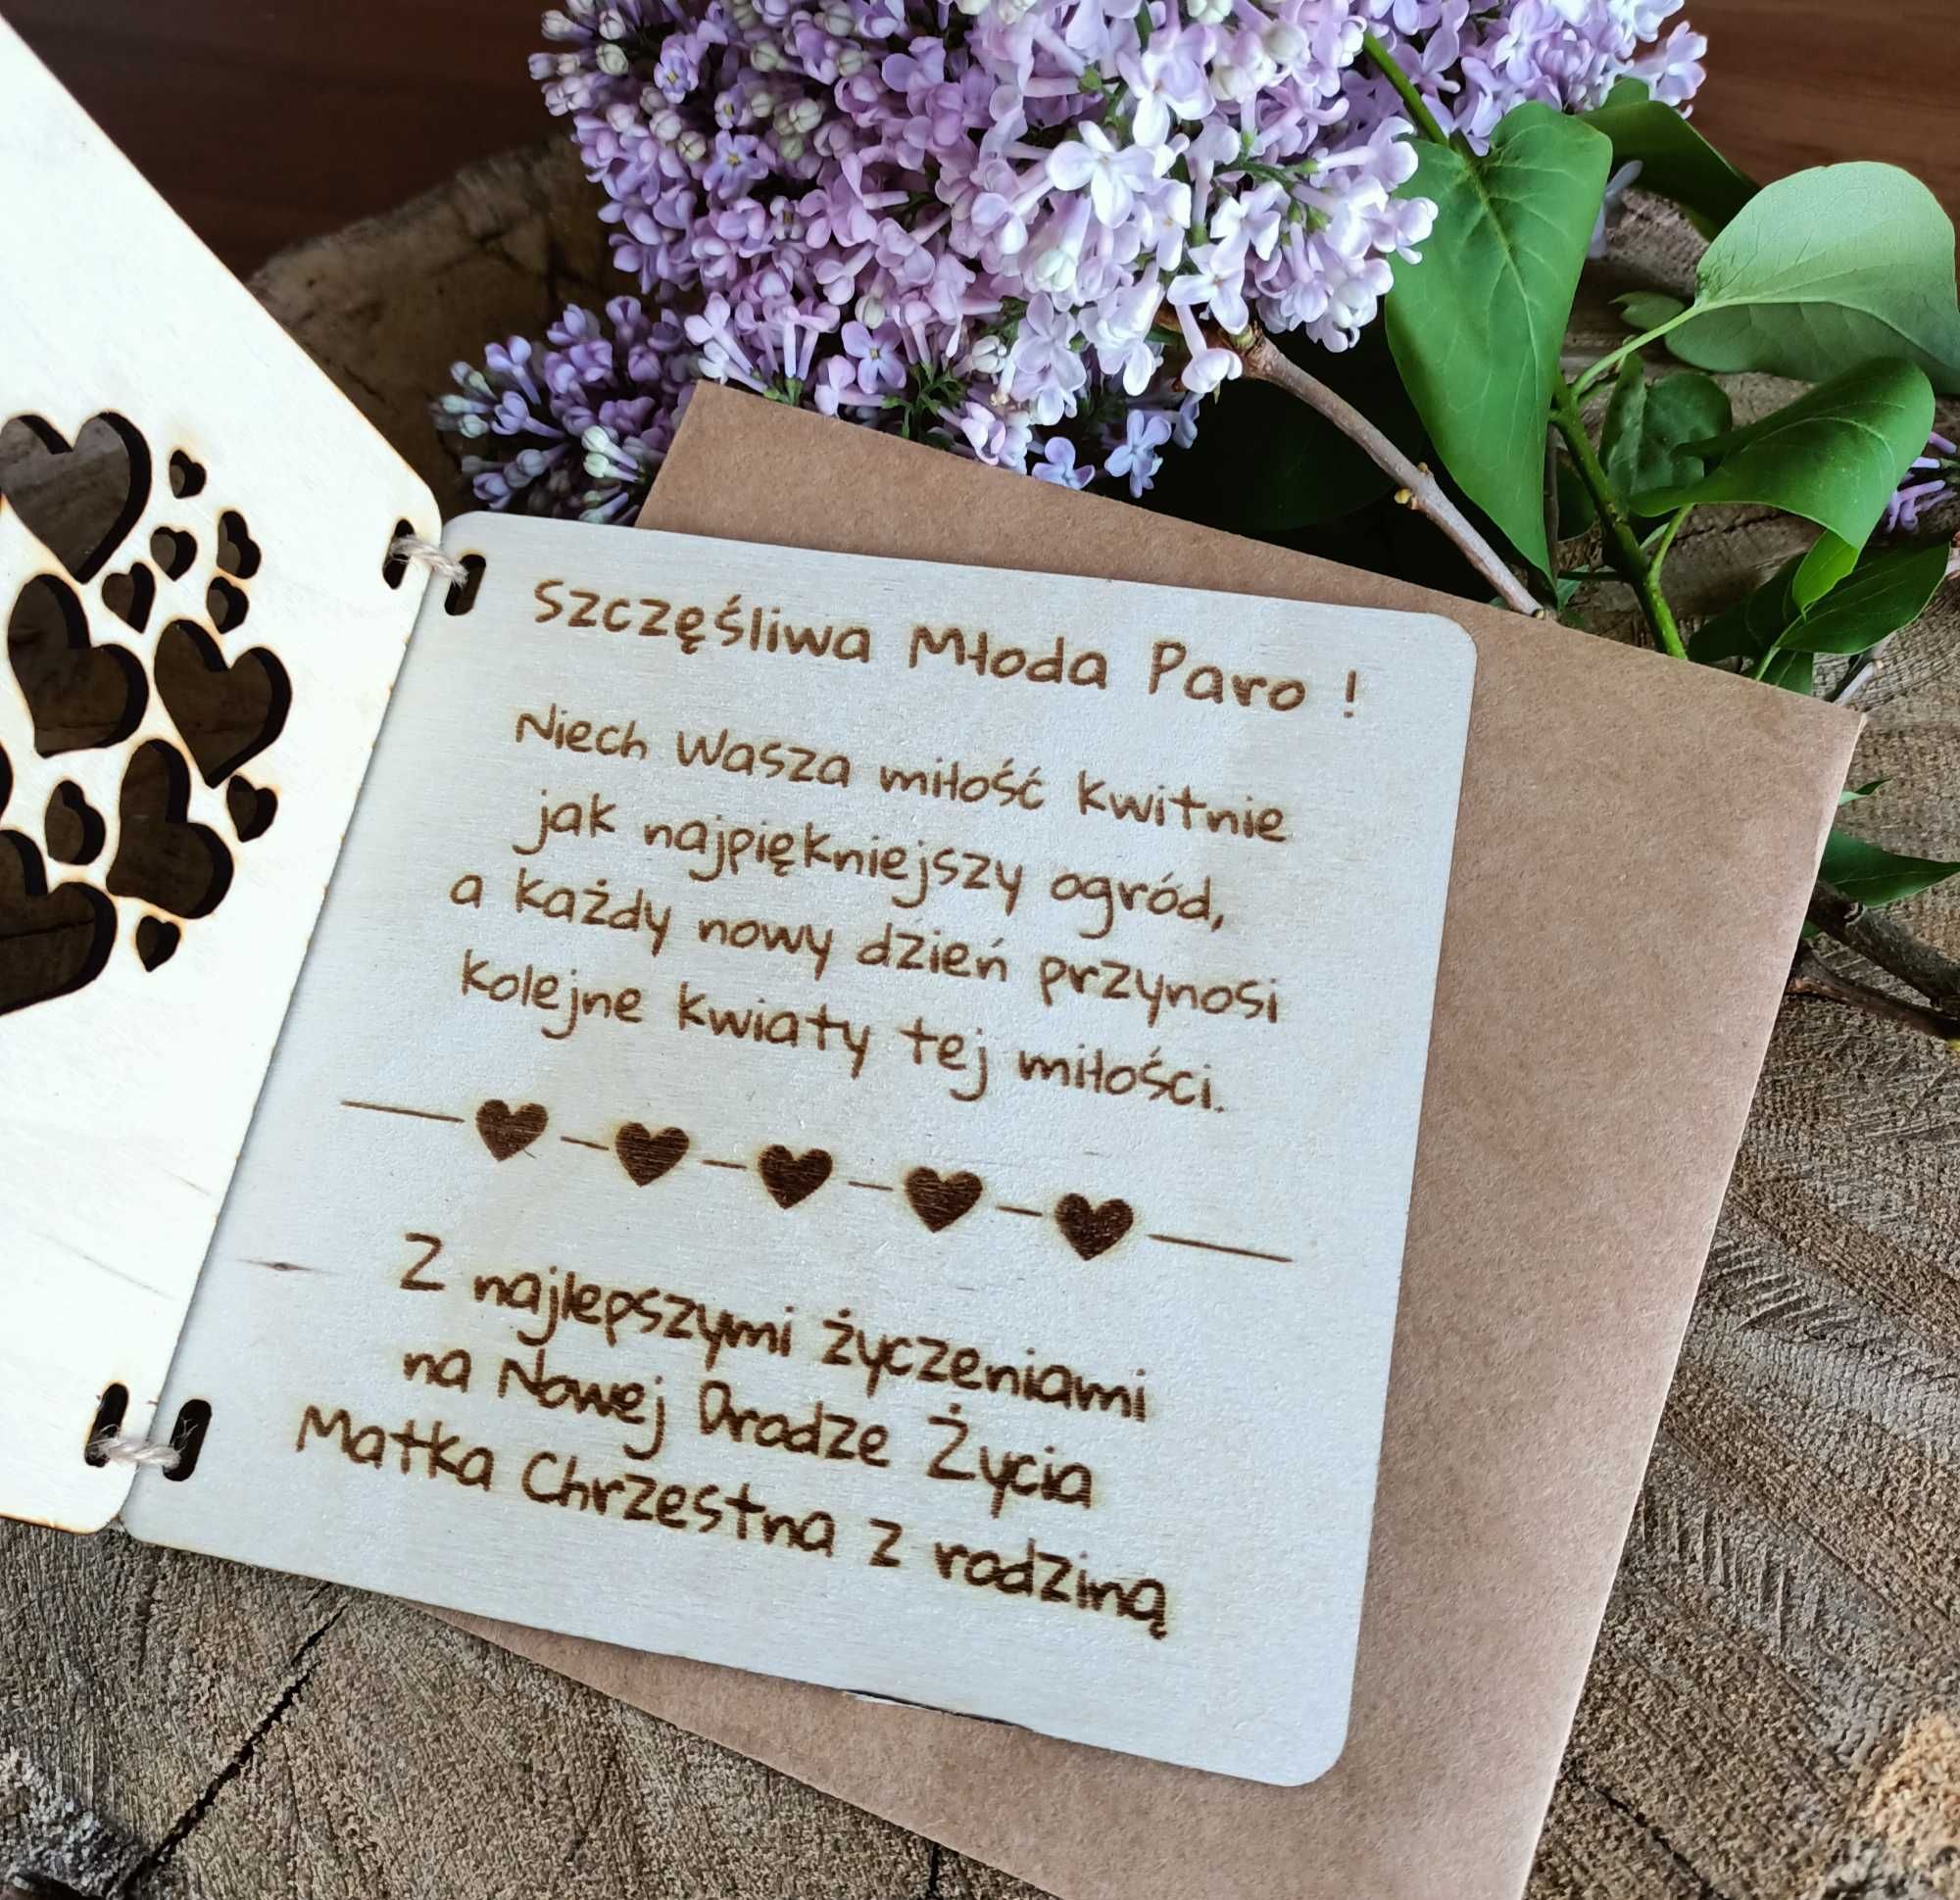 Szczęśliwa Młoda Paro !
Niech Wasza miłość kwitnie
jak najpiękniejszy ogród,
a każdy nowy dzień przynosi
kolejne kwiaty tej miłości.
Z najlepszymi życzeniami
na Nowej Drodze Życia
Matka Chrzestna z rodziną